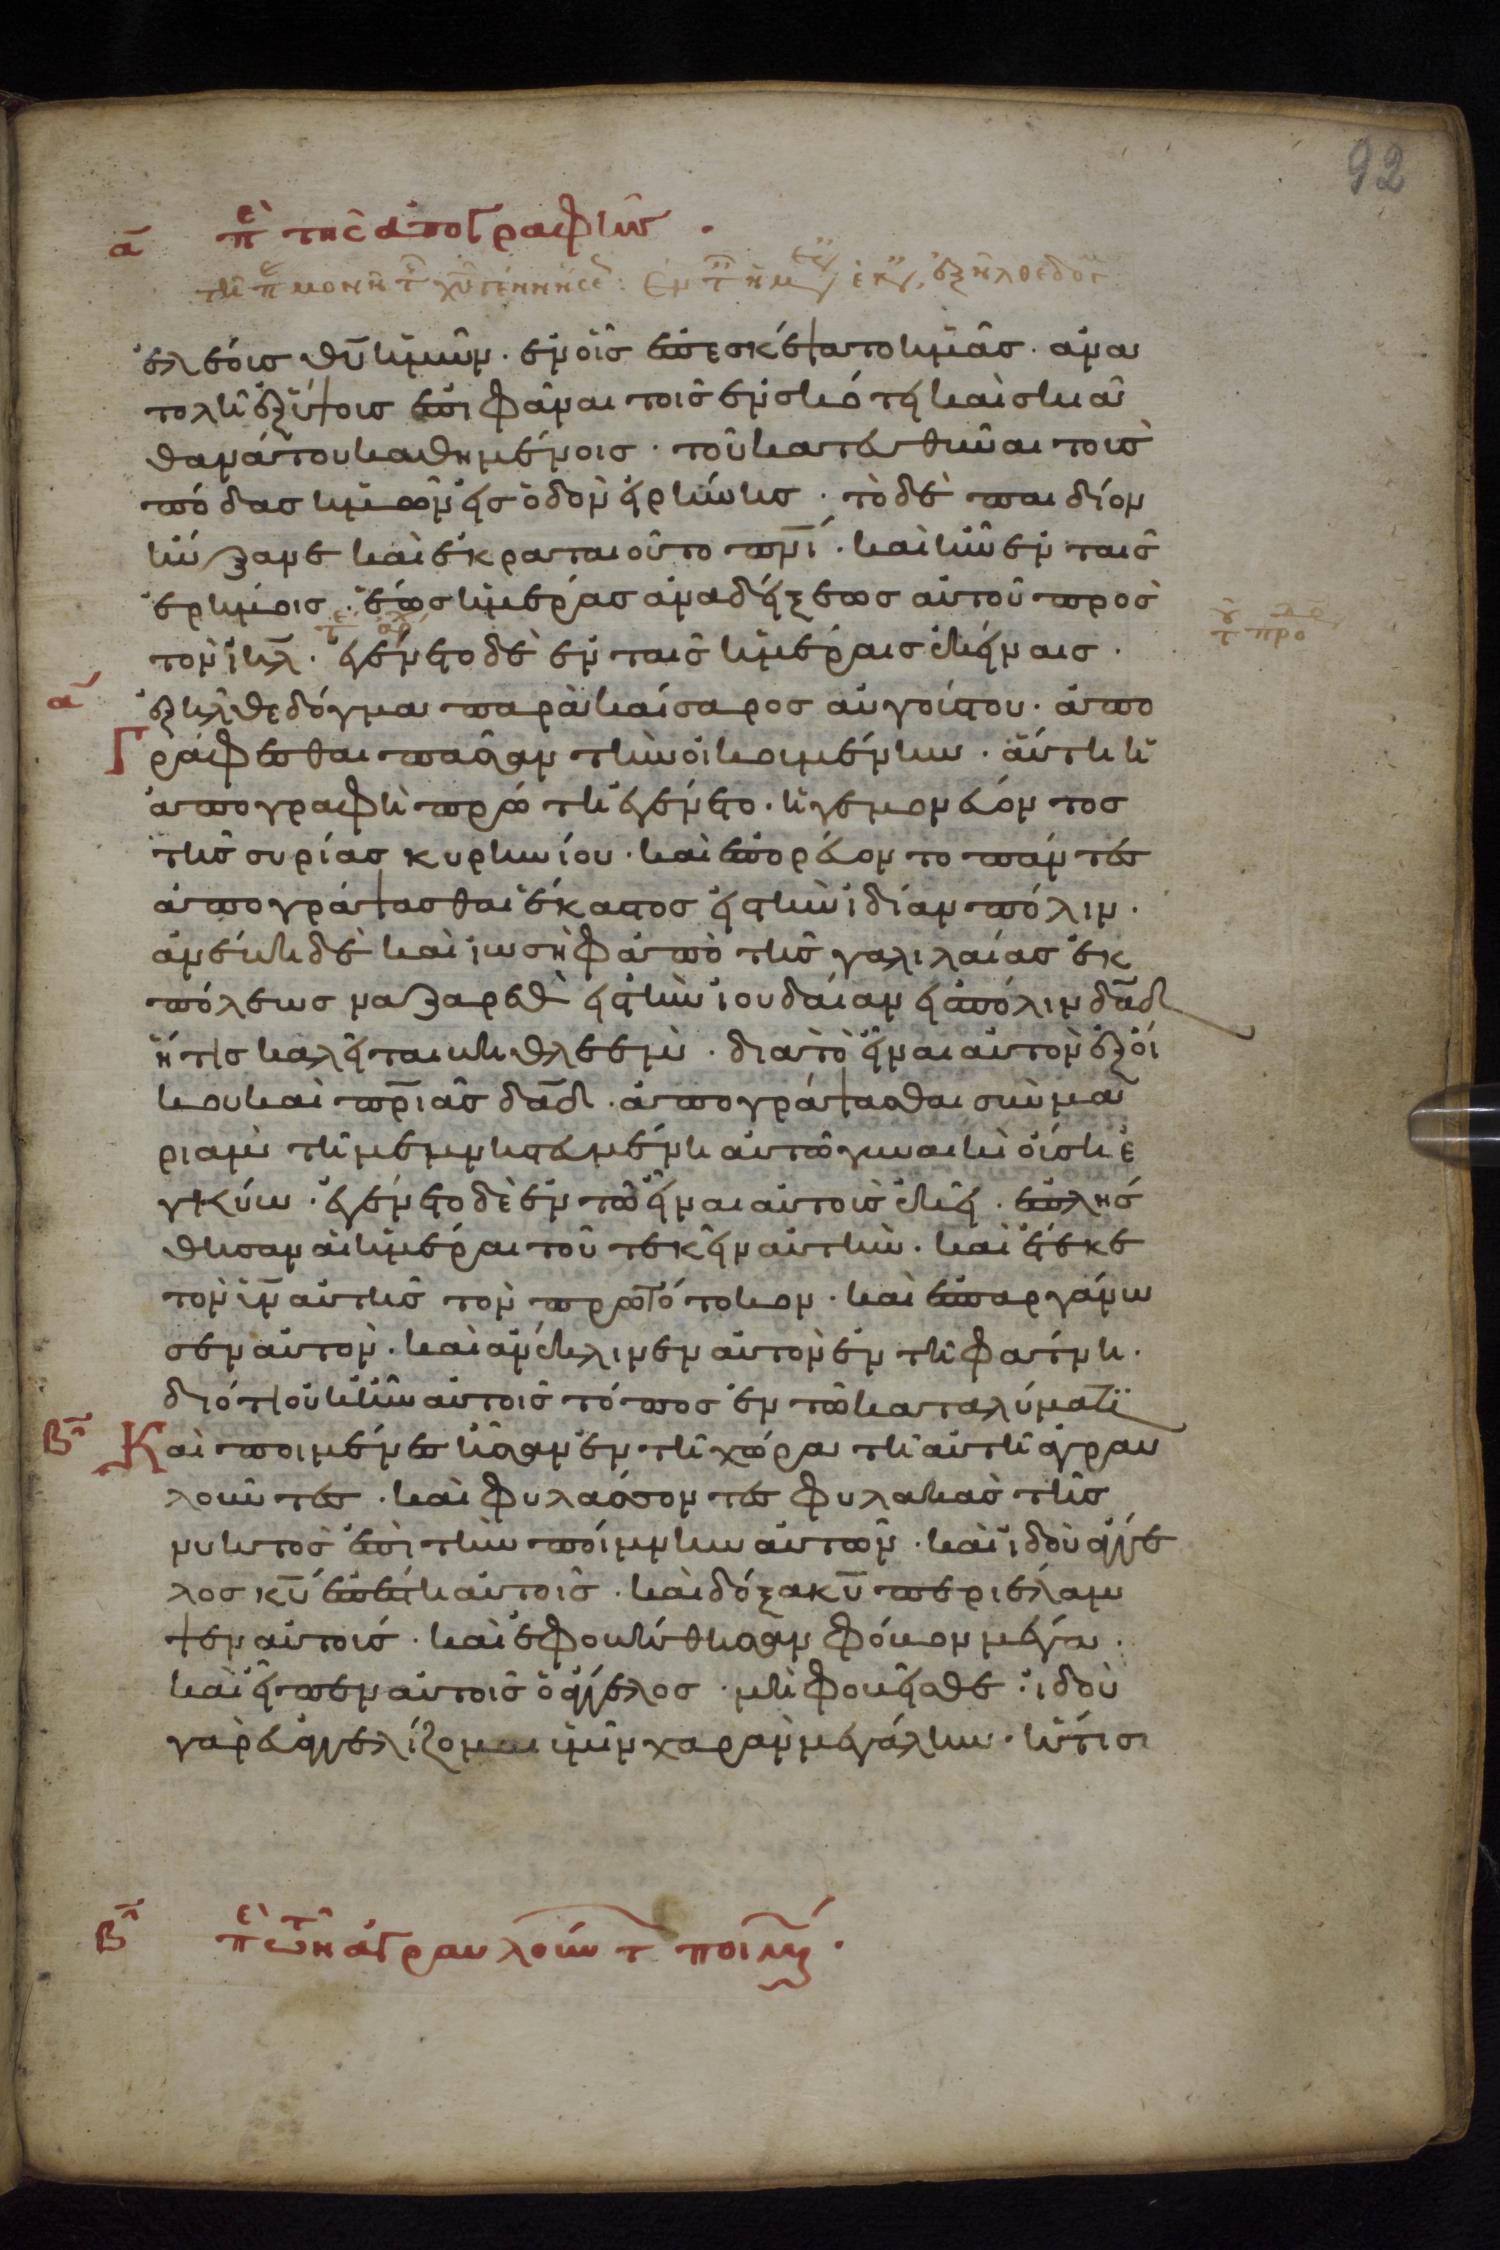 92
α περὶ τῆς ἀπογραφῆς ·
ἐλέους θυ ἡμῶν · ἐν οἷς ἐπεσκέψατο ἡμᾶς · ἀνα
τολὴ ἐξ ὕψους ἐπιφᾶναι τοῖς ἐν σκότει καὶ σκιᾷ
θανάτου καθημένοις · τοῦ κατευθῦναι τοὺς
πόδας ἡμῶν εἰς ὁδὸν εἰρήνης · τὸ δὲ παιδίον
ηὔξανε καὶ ἐκραταιοῦτο πνι · καὶ ἦν ἐν ταῖς
ἐρήμοις · ἕως ἡμέρας ἀναδείξεως αὐτοῦ πρὸς
τὸν ιηλ · ἐγένετο δὲ ἐν ταῖς ἡμέραις ἐκείναις ·
α ἐξῆλθε δόγμα παρὰ καίσαρος αὐγούστου · ἀπο
γράφεσθαι πᾶσαν τὴν οἰκουμένην · αὕτη ἡ
ἀπογραφὴ πρώτη ἐγένετο · ἡγεμονεύοντος
τῆς συρίας κυρηνίου · καὶ ἐπορεύοντο πάντες
ἀπογράψασθαι ἕκαστος εἰς τὴν ἰδίαν πόλιν ·
ἀνέβη δὲ καὶ ἰωσὴφ ἀπὸ τῆς γαλιλαίας ἐκ
πόλεως ναζαρὲθ εἰς τὴν ἰουδαίαν εἰς πόλιν δαδ
ἥτις καλεῖται βηθλεέμ · διὰ τὸ εἶναι αὐτὸν ἐξ οἴ
κου καὶ πριᾶς δαδ · ἀπογράψασθαι σὺν μα
ριὰμ τῇ μεμνηστευμένῃ αὐτῷ γυναικὶ οὔσῃ ἐ
γκύω · ἐγένετο δὲ ἐν τῷ εἶναι αὐτοὺς ἐκεῖ · ἐπλήσ
θησαν αἱ ἡμέραι τοῦ τεκεῖν αὐτήν · καὶ ἔτεκε
τὸν υν αὐτῆς τὸν πρωτότοκον · καὶ ἐσπαργάνω
σεν αὐτόν · καὶ ἀνέκλινεν αὐτὸν ἐν τῇ φάτνῃ ·
διότι οὐκ ἦν αὐτοῖς τόπος ἐν τῷ καταλύματι
β Καὶ ποιμένες ἦσαν ἐν τῇ χώρᾳ τῇ αὐτῇ ἀγραυ
λοῦντες · καὶ φυλάσσοντες φυλακὰς τῆς
νυκτὸς ἐπὶ τὴν ποίμνην αὐτῶν · καὶ ἰδοὺ ἄγγε
λος κυ ἐπέστη αὐτοῖς · καὶ δόξα κυ περιέλαμ
ψεν αὐτούς · καὶ ἐφοβήθησαν φόβον μέγα ·
καὶ εἶπεν αὐτοῖς ὁ ἄγγελος · μὴ φοβεῖσθε · ἰδοὺ
γὰρ εὐαγγελίζομαι ὑμῖν χαρὰν μεγάλην · ἥτις
β περὶ τῶν ἀγραυλούντ ποιμέν ·